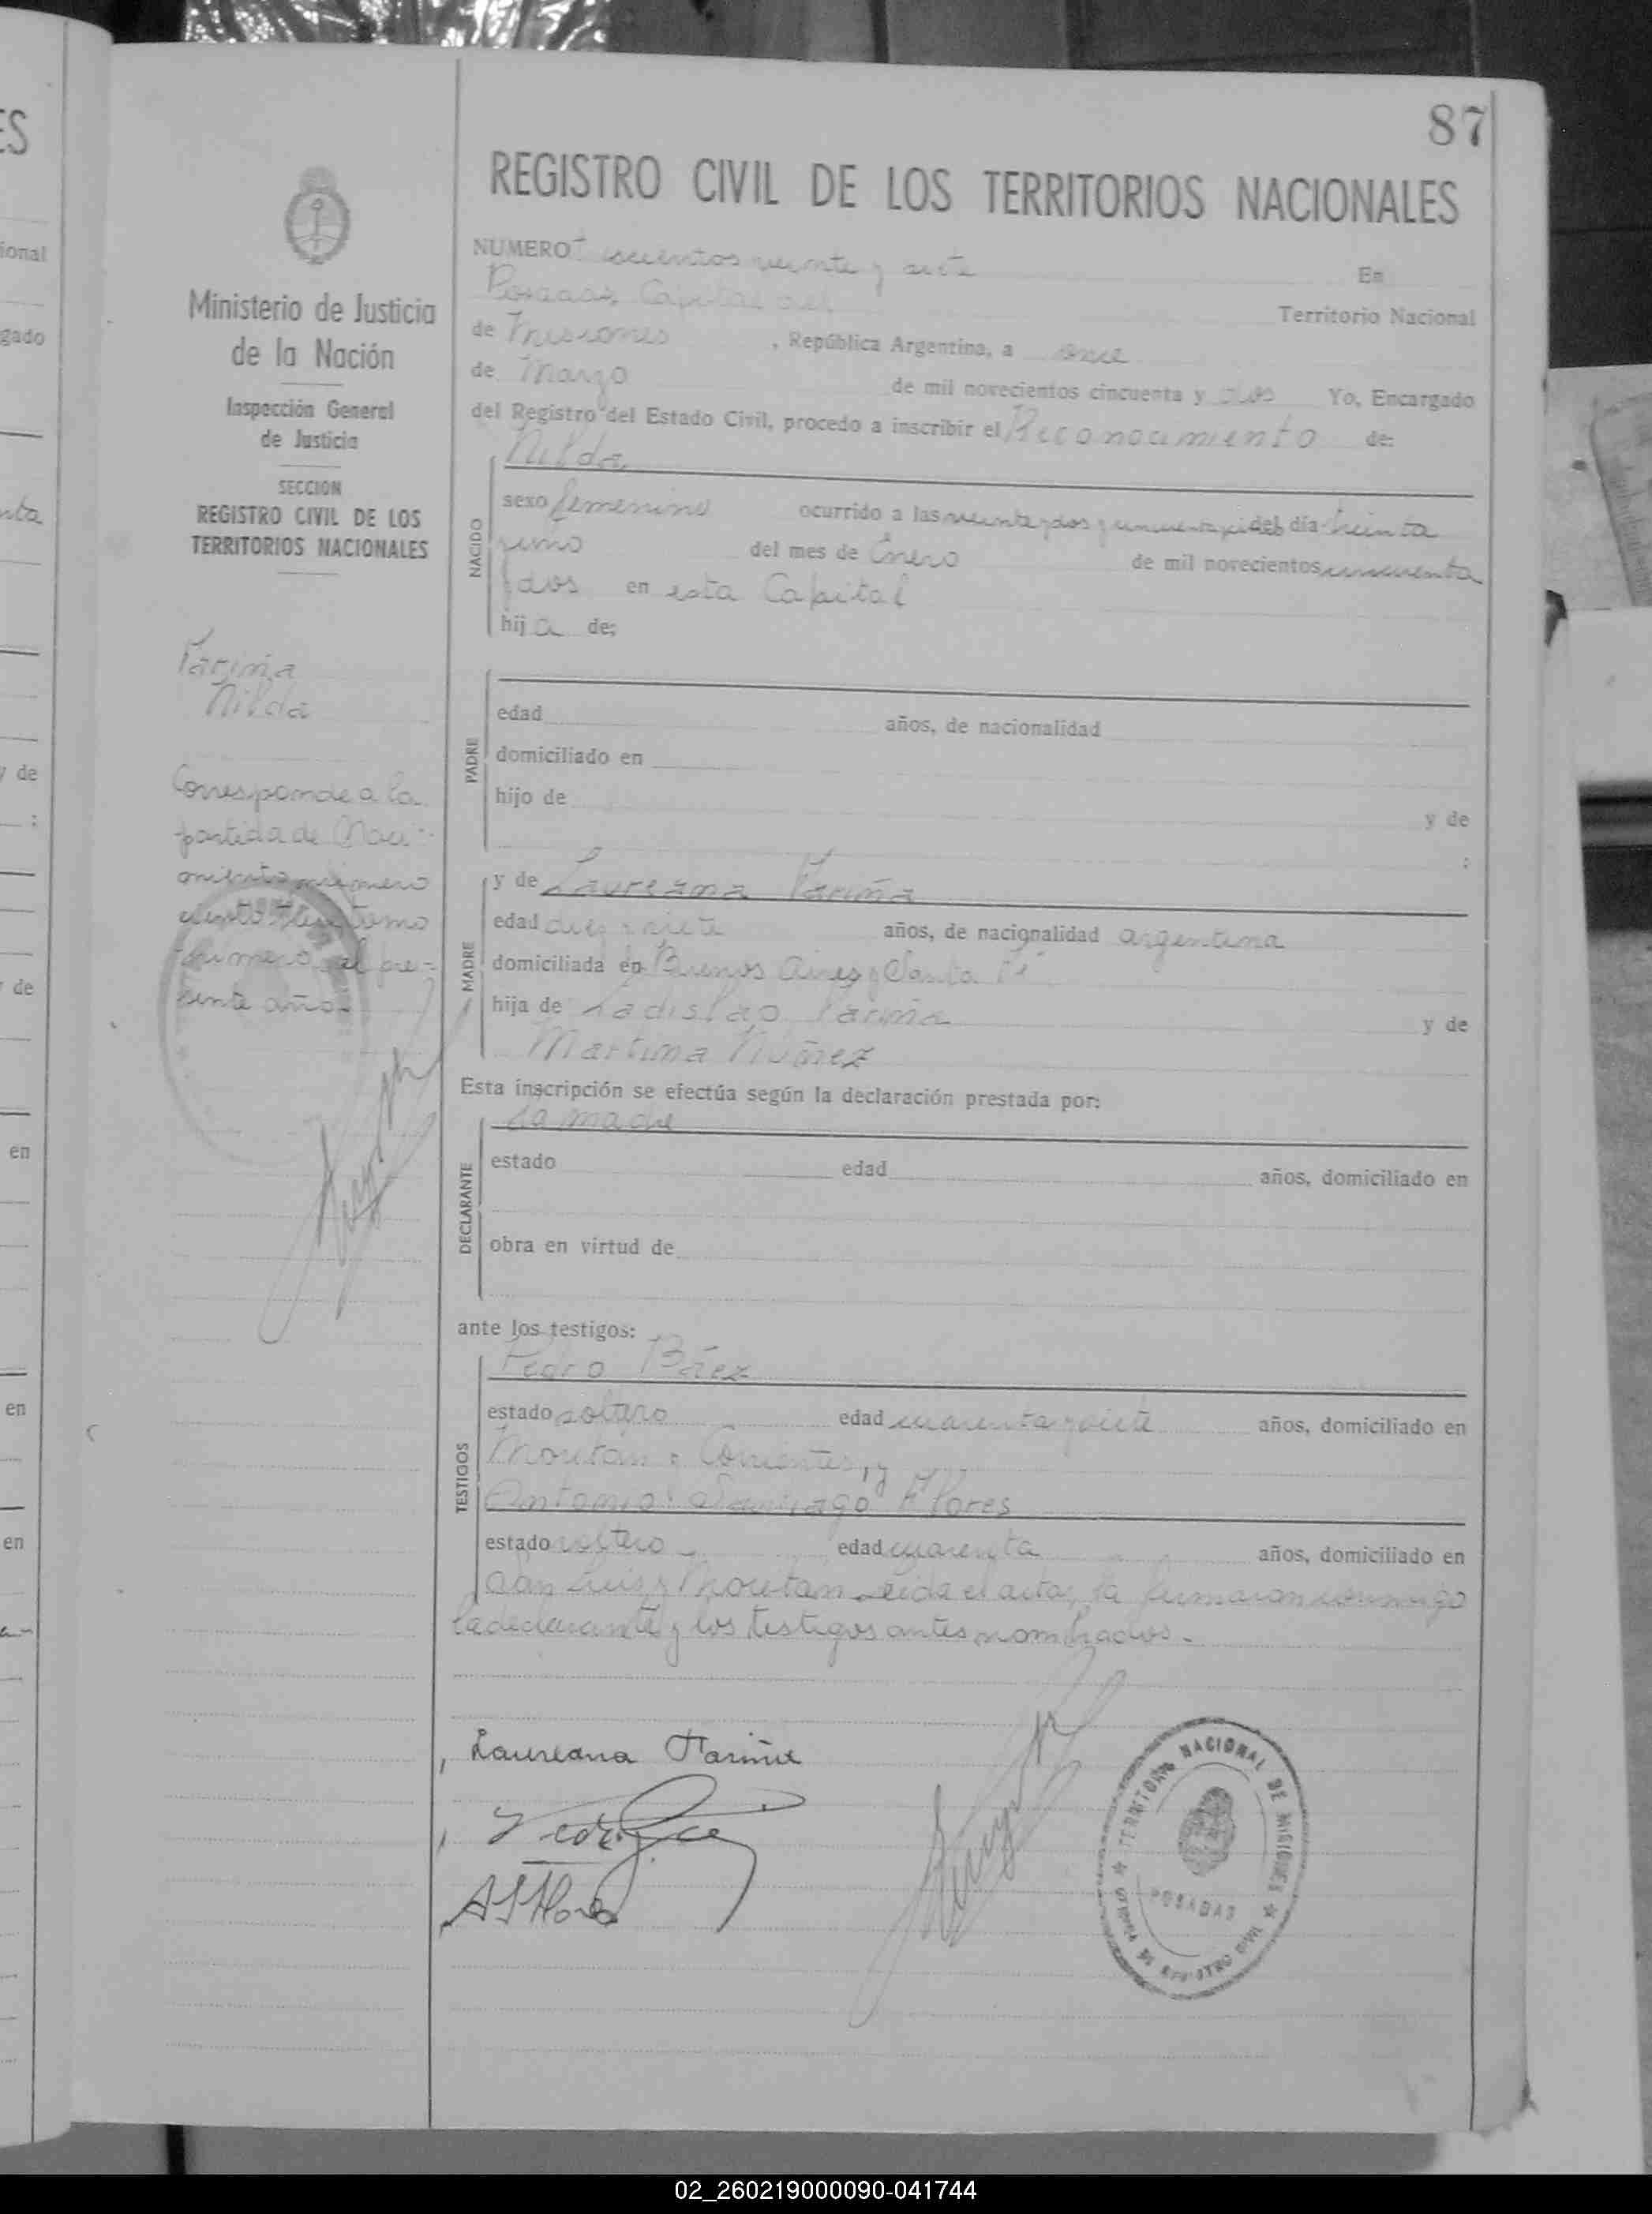 87
REGISTRO CIVIL DE LOS TERRITORIOS NACIONALES
Ministerio de Justicia
de la Nación
Inspección General
de Justicia
SECCION
REGISTRO CIVIL DE LOS
TERRITORIOS NACIONALES
Fariña
Nilda
Corresponde a la
partida de Naci-
miento número
ciento tomo
primero del pre-
sente año.-
NUMERO Trescientos veinte y siete En
Posadas, Capital del Territorio Nacional
de Misiones, República Argentina, a once
de Marzo de mil novecientos cincuenta y dos Yo, Encargado
del Registro del Estado Civil, procedo a inscribir el Reconocimiento de:
NACIDO
Nilda
sexo femenino ocurrido a las veinte y dos y del día treinta
y uno del mes de Enero de mil novecientos cincuenta
y dos en esta Capital
hija de;
PADRE
edad años, de nacionalidad
domiciliado en
hijo de y de
:
MADRE
y de Laureana Fariña
edad diez y siete años, de nacionalidad argentina
domiciliada en Buenos Aires y Santa Fé
hija de Ladislao Fariña y de
Martina Núñez
Esta inscripción se efectúa según la declaración prestada por:
DECLARANTE
La madre
estado edad años, domiciliado en
obra en virtud de
ante los testigos:
TESTIGOS
Pedro Báez
estado soltero edad cuarenta y siete años, domiciliado en
Moritan y Corrientes, y
Antonio Santiago Flores
estado soltero edad cuarenta años, domiciliado en
San Luis y Moritan Leida el acta, la firmaron conmigo
la declarante y los testigos antes nombrados.-
Laureana Fariña
ASFlores
TERRITORIO NACIONAL DE MISIONES
POSADAS
OFICINA DE REGISTRO CIVIL
ional
gado
y de
:
y de
en
en
en
02_260219000090-041744